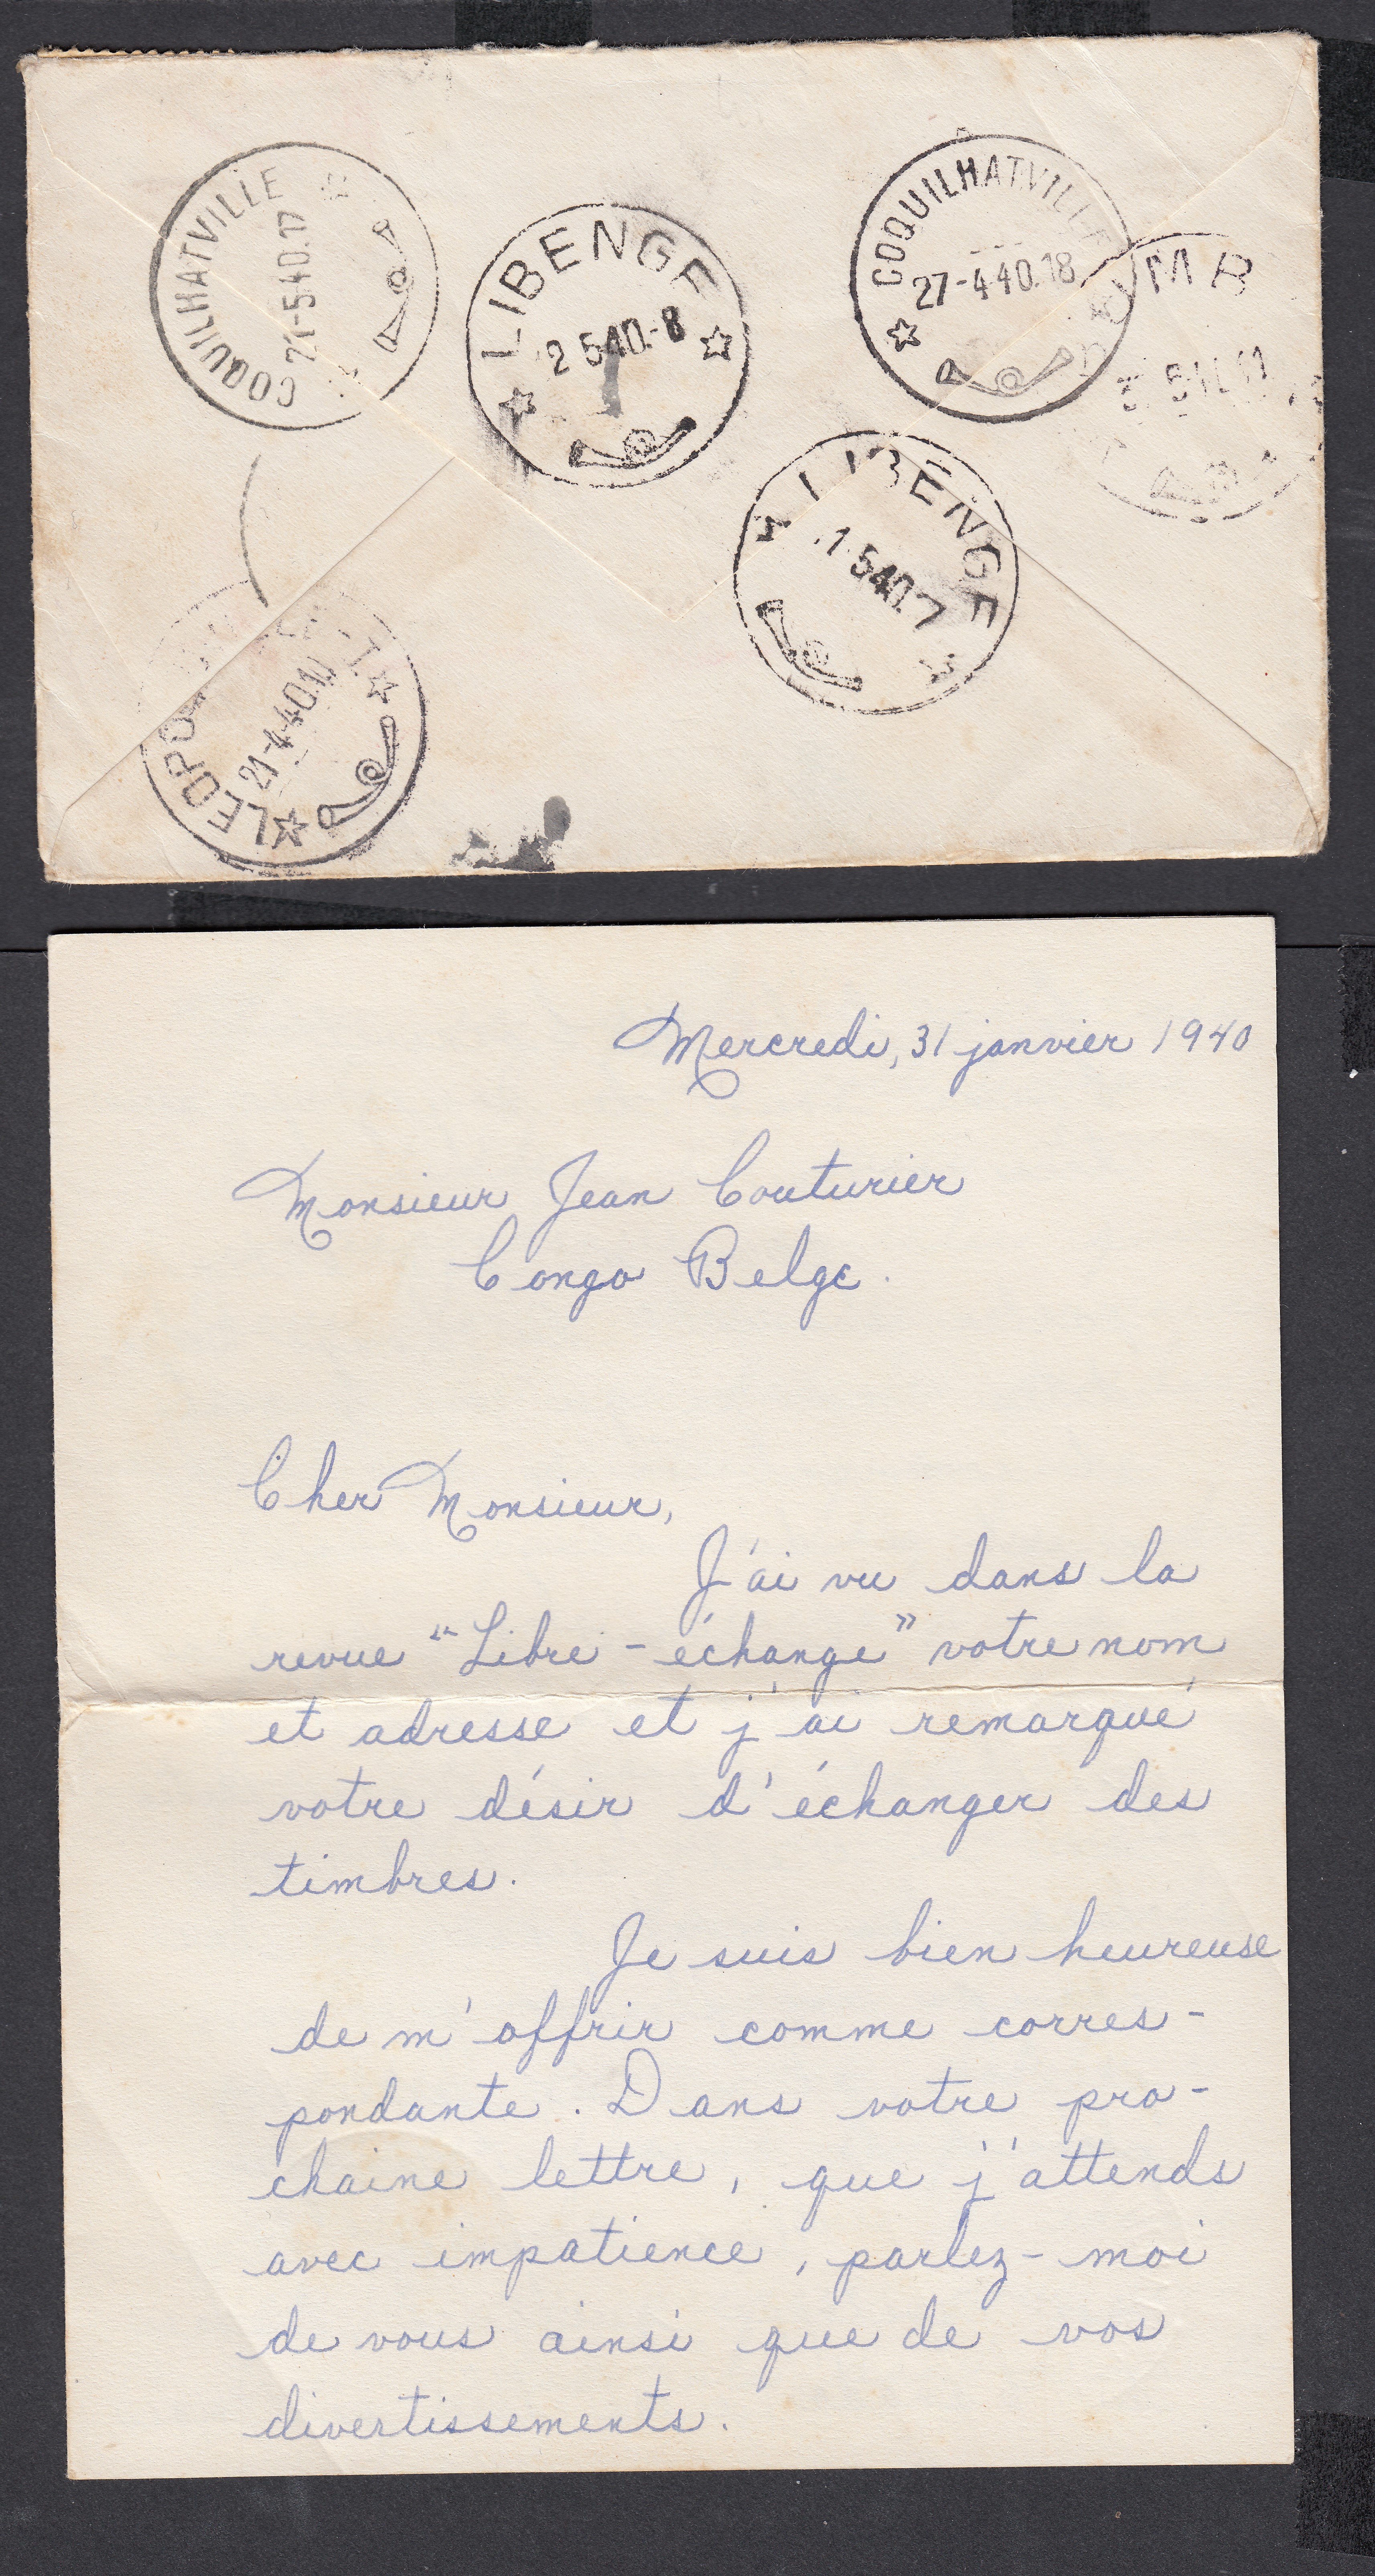 COQUILHATVILLE
21-5.40.17
LIBENGE
2 540.-8
COQUILHATVILLE
27-4-40.18
LIBENGE
.1.540.7
21-4-40
Mercredi, 31 janvier 1940
Monsieur Jean Couturier
Congo Belge.
Cher Monsieur,
J'ai vu dans la
revue "Libre-échange" votre nom
et adresse et j'ai remarqué
votre désir d'échanger des
timbres.
Je suis bien heureuse
de m'offrir comme corres-
pondante. Dans votre pro-
chaine lettre, que j'attends
avec impatience, parlez-moi
de vous ainsi que de vos
divertissements.